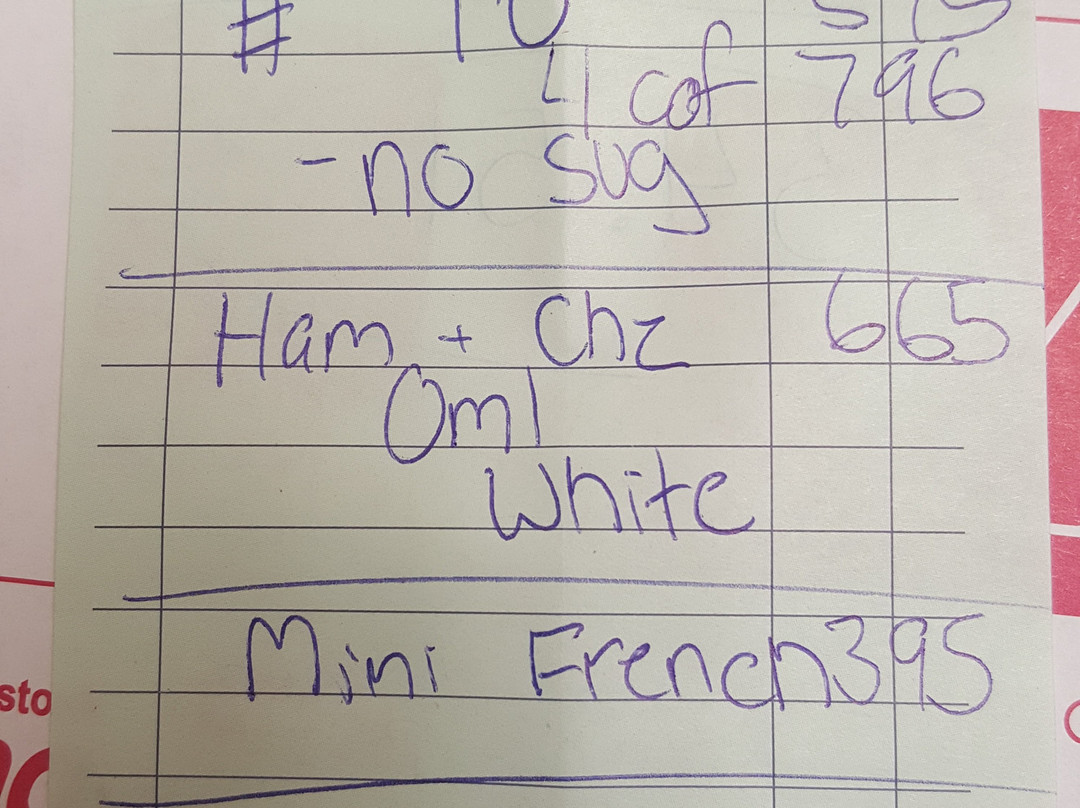 # 10
4 cof 796
-no sug
Ham + Chz 665
Oml
White
Mini French 395
sto